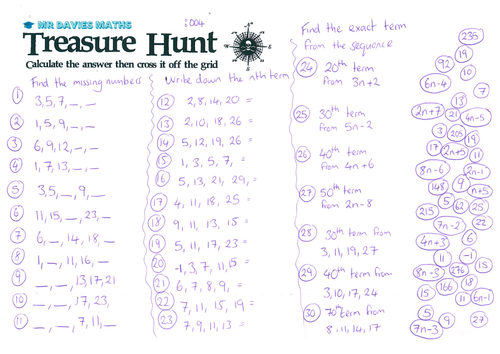 MR DAVIES MATHS
004
Treasure Hunt
Calculate the answer then cross it off the grid
Find the missing numbers
1 3, 5, 7, _, _
2 1, 5, 9, _, _
3 6, 9, 12, _, _
4 1, 7, 13, _, _
5 3, 5, _, 9, _
6 11, 15, _, 23, _
7 6, _, 14, 18, _
8 1, _, 11, 16, _
9 _, _, 13, 17, 21
10 _, _, 17, 23,
11 _, _, 7, 11, _
Write down the nth term
12 2, 8, 14, 20 =
13 2, 10, 18, 26 =
14 5, 12, 19, 26 =
15 1, 3, 5, 7, =
16 5, 13, 21, 29, =
17 4, 11, 18, 25 =
18 9, 11, 13, 15 =
19 5, 11, 17, 23 =
20 -1, 3, 7, 11, 15 =
21 6, 7, 8, 9, =
22 7, 11, 15, 19 =
23 7, 9, 11, 13 =
Find the exact term
from the sequence
24 20th term
from 3n+2
25 30th term
from 5n-2
26 40th term
from 4n+6
27 50th term
from 2n-8
28 30th term from
3, 11, 19, 27
29 40th term from
3, 10, 17, 24
30 70th term from
8, 11, 14, 17
235
19
92
10
6n-4
7
13
2n+7
21
4n-5
3
205
19
17
2n+5
11
8n-6
2n-1
148
9
n+5
5
62
25
215
7n-2
22
4n+3
6
11
-1
8n-3
276
15
15
166
18
11
6n-1
5
9
27
7n-3